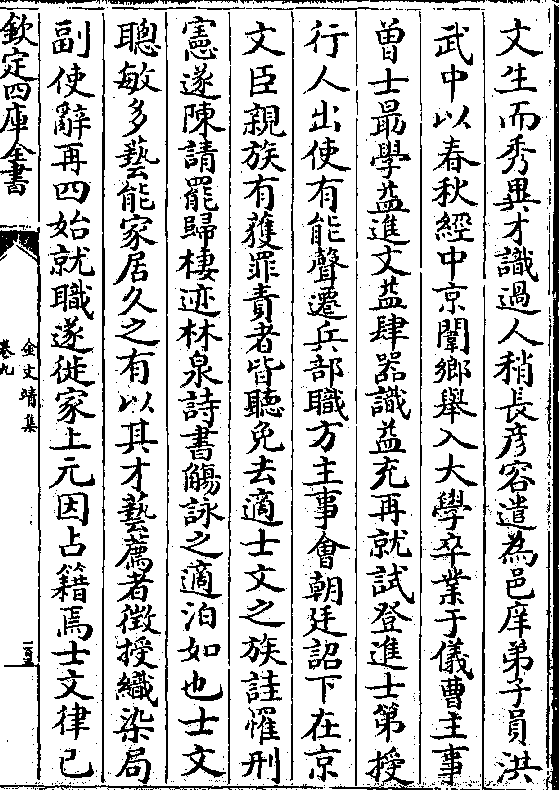 文生而秀異才識過人稍長彦容遣為邑庠弟子員洪
武中以春秋經中京闈鄉舉入大學卒業于儀曹主事
曽士朂學益進文益肆器識益充再就試登進士第授
行人出使有能聲遷兵部職方主事㑹朝廷詔下在京
文臣親族有獲罪責者皆聽免去適士文之族詿罹刑
憲遂陳請罷歸棲迹林泉詩書觴詠之適泊如也士文
聰敏多藝能家居久之有以其才藝薦者徴授織染局
副使辭再四始就職遂徙家上元因占籍焉士文律已
欽定四庫全書
金文靖集
卷九